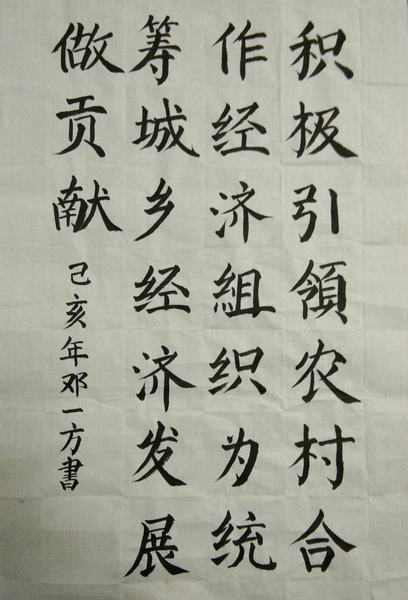 积极引領农村合
作经济組织为统
筹城乡经济发展
做贡献
己亥年邓一方書